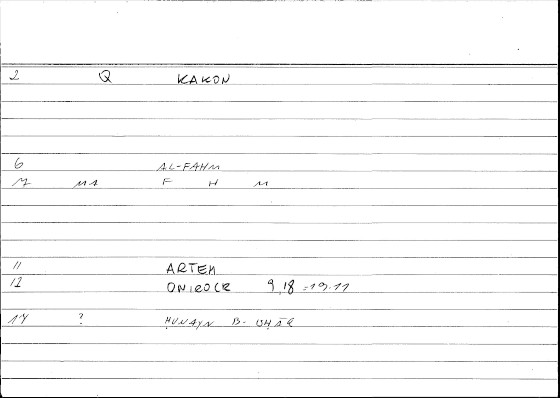 2 Q KAKON
6 AL-FAHM
M MA F H M
11 ARTEM
12 ONIROCR 9,18 = 19.11
14 ? ḤUNAYN B-